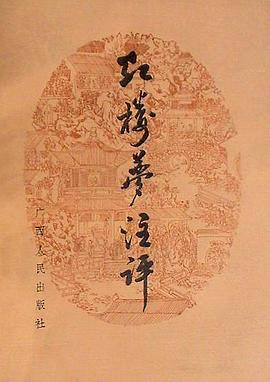 红楼梦注评
广西人民出版社